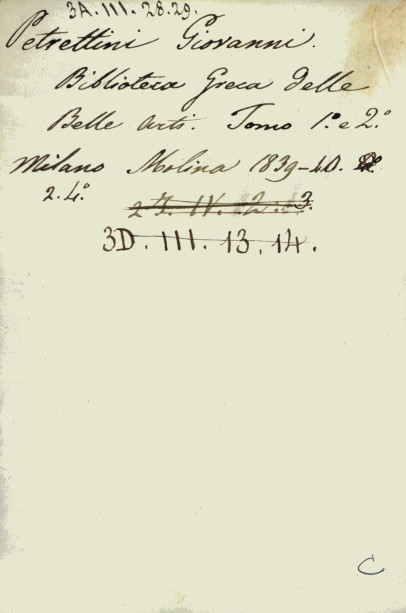 3A.III.28.29.
Petrettini Giovanni.
Biblioteca Greca delle
Belle Arti. Tomo 1.º e 2.º
Milano Molina 1839-40.
2. 4.º
3D. III. 13. 14.
C